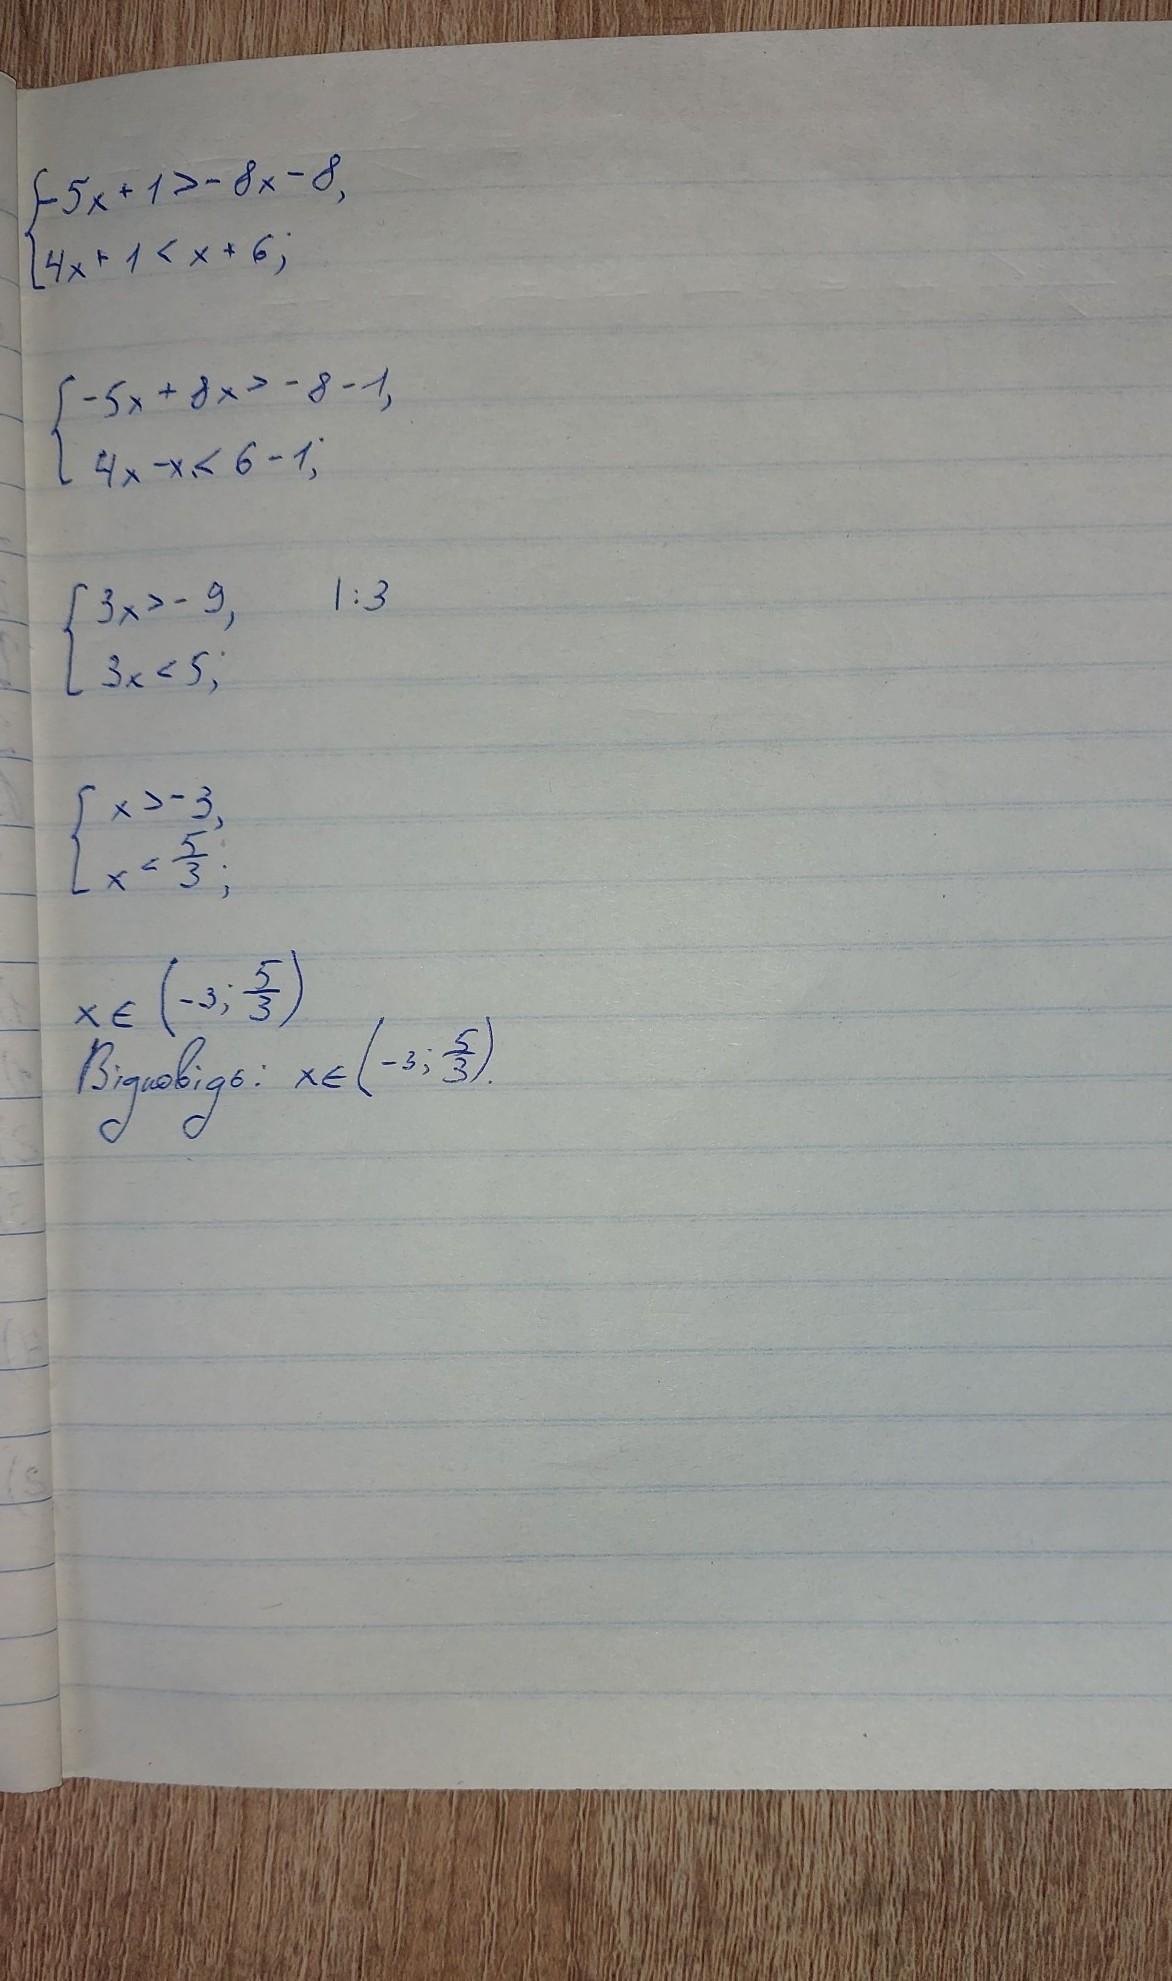 {-5x+1>-8x-8,
4x+1<x+6;
{-5x+8x>-8-1,
4x-x<6-1;
{3x>-9, |:3
3x<5;
{x>-3,
x<5/3;
x∈(-3; 5/3)
Відповідь: x∈(-3; 5/3).